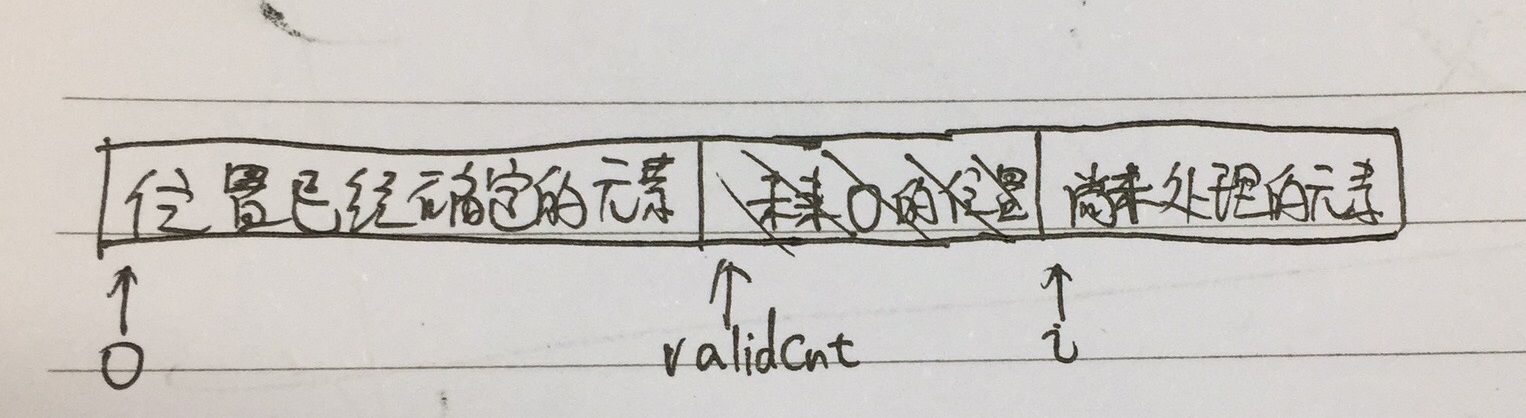 位置已经确定的元素 未来0的位置 尚未处理的元素
0 validCnt i